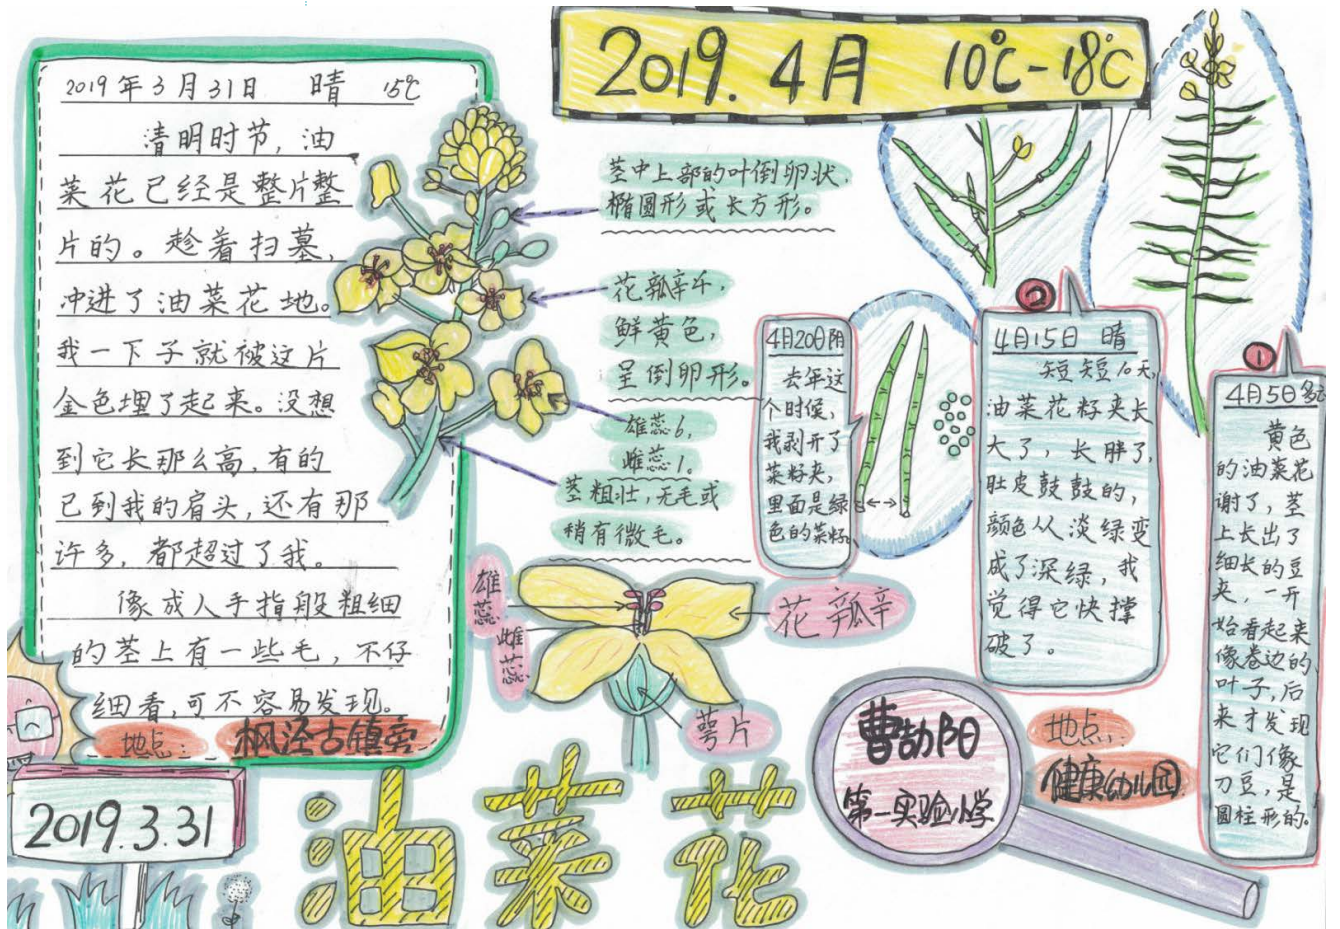 2019年3月31日 晴 15℃
清明时节，油
菜花已经是整片整
片的。趁着扫墓，
冲进了油菜花地。
我一下子就被这片
金色埋了起来。没想
到它长那么高，有的
已到我的肩头，还有那
许多，都超过了我。
像成人手指般粗细
的茎上有一些毛，不仔
细看，可不容易发现。
地点：枫泾古镇旁
2019.3.31
2019.4月 10℃-18℃
茎中上部的叶倒卵状、
椭圆形或长方形。
花瓣4，
鲜黄色，
呈倒卵形。
雄蕊6，
雌蕊1。
茎粗壮，无毛或
稍有微毛。
雄蕊
雌蕊
花瓣
萼片
4月20日阴
去年这
个时候，
我剥开了
菜籽夹，
里面是绿
色的菜籽。
②
4月15日 晴
短短10天，
油菜花籽夹长
大了，长胖了，
肚皮鼓鼓的，
颜色从淡绿变
成了深绿，我
觉得它快撑
破了。
①
4月5日多云
黄色
的油菜花
谢了，茎
上长出了
细长的豆
夹，一开
始看起来
像卷边的
叶子，后
来才发现
它们像
刀豆，是
圆柱形的。
曹劼阳
第一实验小学
地点：
健康幼儿园
油菜花